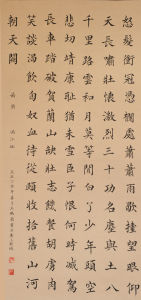 怒髮衝冠憑欄處蕭蕭雨歇擡望眼仰
天長嘯壯懷激烈三十功名塵與土八
千里路雲和月莫等閒白了少年頭空
悲切靖康恥猶未雪臣子恨何時滅駕
長車踏破賀蘭山缺壯志飢餐胡虜肉
笑談渴飲匈奴血待從頭收拾舊山河
朝天闕
岳飛 滿江紅